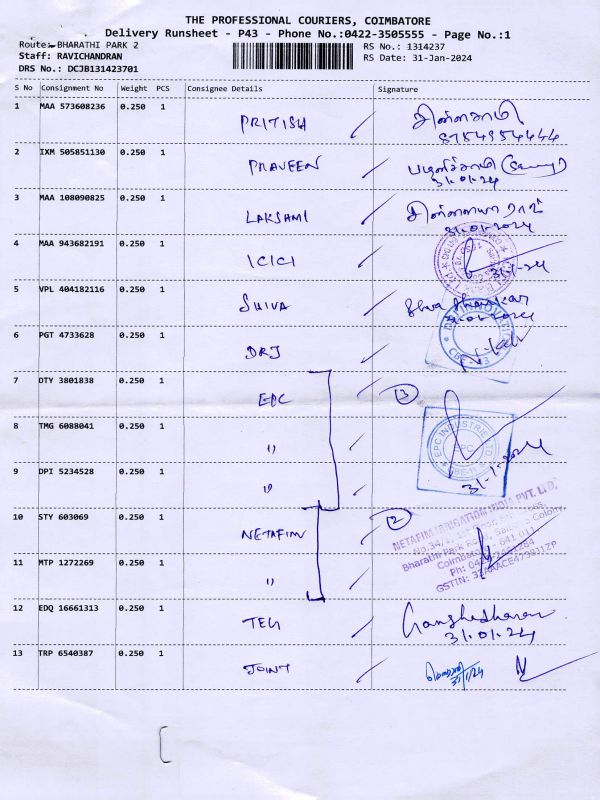 THE PROFESSIONAL COURIERS, COIMBATORE
Delivery Runsheet - P43 - Phone No.:0422-3505555 - Page No.:1
Route: BHARATHI PARK 2 RS No.: 1314237
Staff: RAVICHANDRAN RS Date: 31-Jan-2024
DRS No.: DCJB131423701
S No Consignment No Weight PCS Consignee Details Signature
1 MAA 573608236 0.250 1 PRITISH
8754954444
2 IXM 505851130 0.250 1 PRAVEEN
31.01.24
3 MAA 108090825 0.250 1 LAKSAMI
31.01.2024
4 MAA 943682191 0.250 1 ICICI
5 VPL 404182116 0.250 1 SHIVA
31.01.2024
6 PGT 4733628 0.250 1 DRJ
7 DTY 3801838 0.250 1 EPC 3
8 TMG 6088041 0.250 1 "
EPC
9 DPI 5234528 0.250 1 "
31-1-2024
10 STY 603069 0.250 1 NETAFIM 2
NETAFIM IRRIGATION INDIA PVT. LTD.
11 MTP 1272269 0.250 1 "
12 EDQ 16661313 0.250 1 TEG
31.01.24
13 TRP 6540387 0.250 1 JOINT
31/1/24